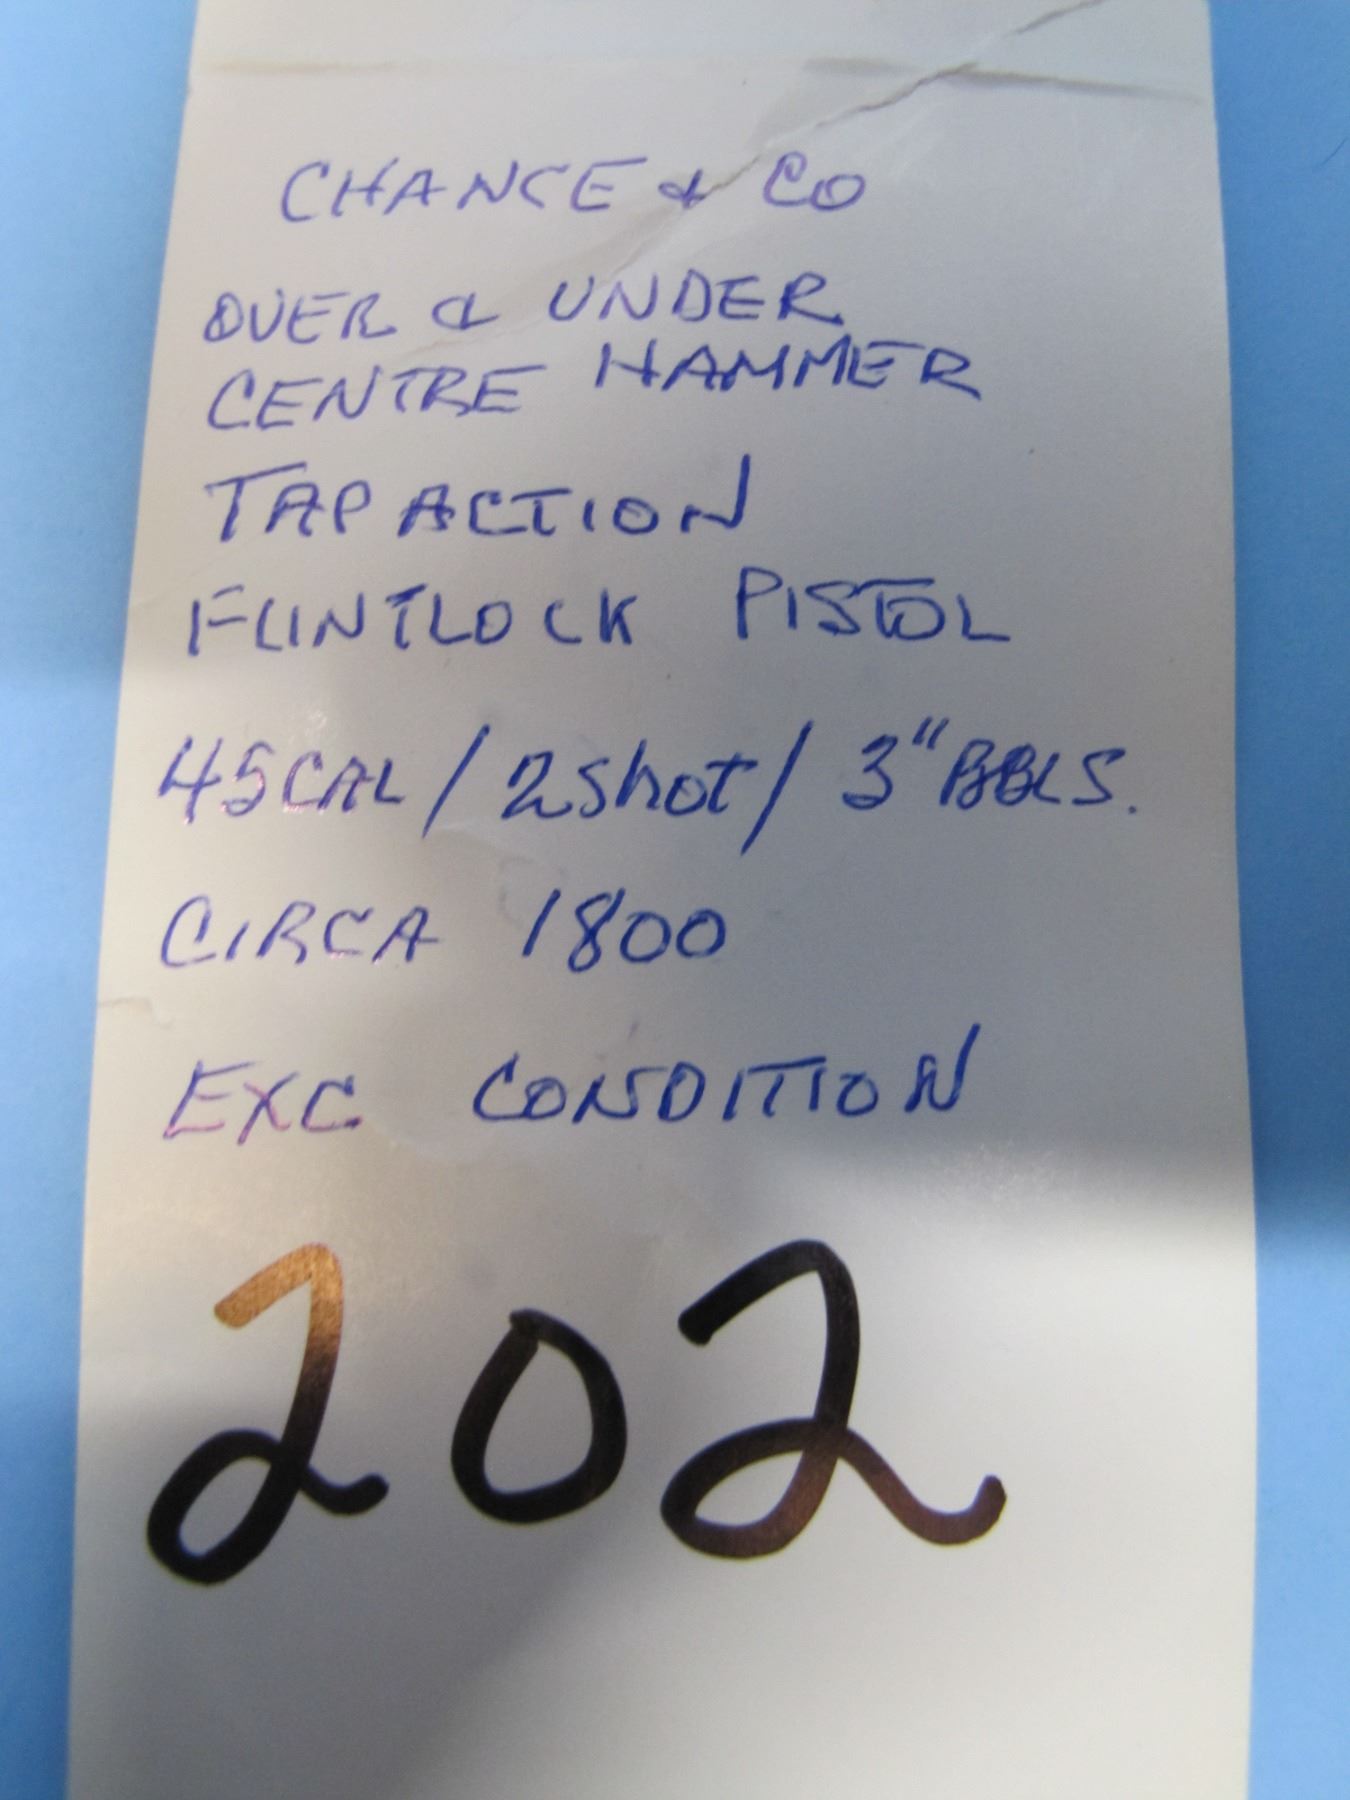 CHANCE & CO
OVER & UNDER
CENTRE HAMMER
TAP ACTION
FLINTLOCK PISTOL
45CAL / 2shot / 3" BBLS.
CIRCA 1800
EXC CONDITION
202